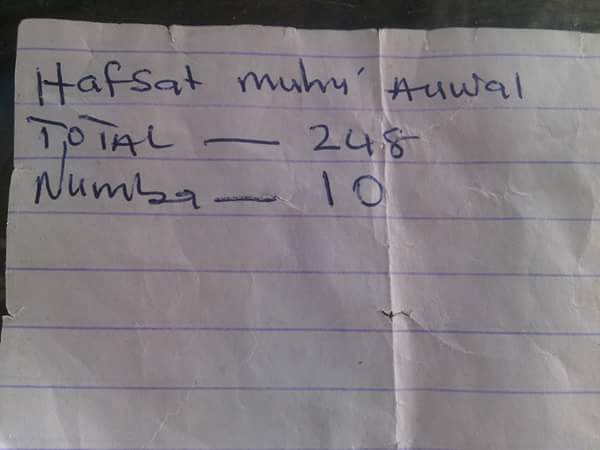 Hafsat muhu' Auwal
TOTAL — 248
Numba — 10